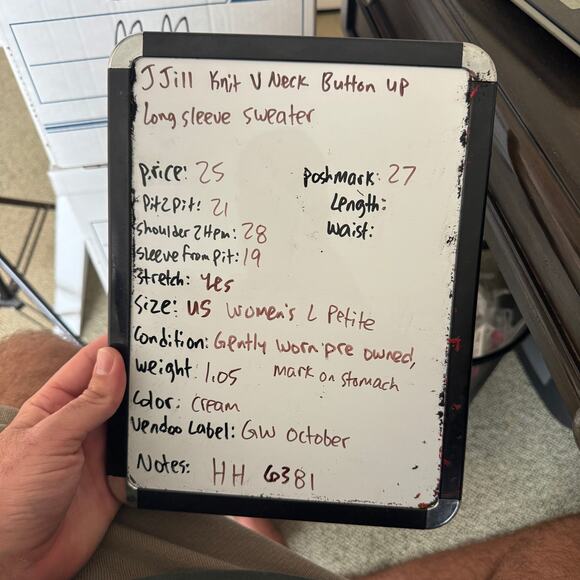 JJill Knit V Neck Button up
Long sleeve sweater
price: 25
poshmark: 27
Pit2Pit: 21
Length:
shoulder2Hem: 28
waist:
sleeve from pit: 19
stretch: yes
Size: US Women's L Petite
Condition: Gently worn pre owned,
mark on stomach
weight: 1.05
Color: Cream
Vendoo Label: GW October
Notes: HH 6381